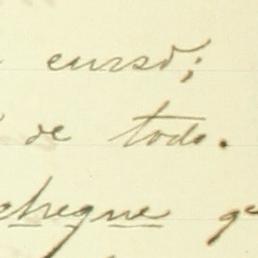 curso;
de todo.
chegue